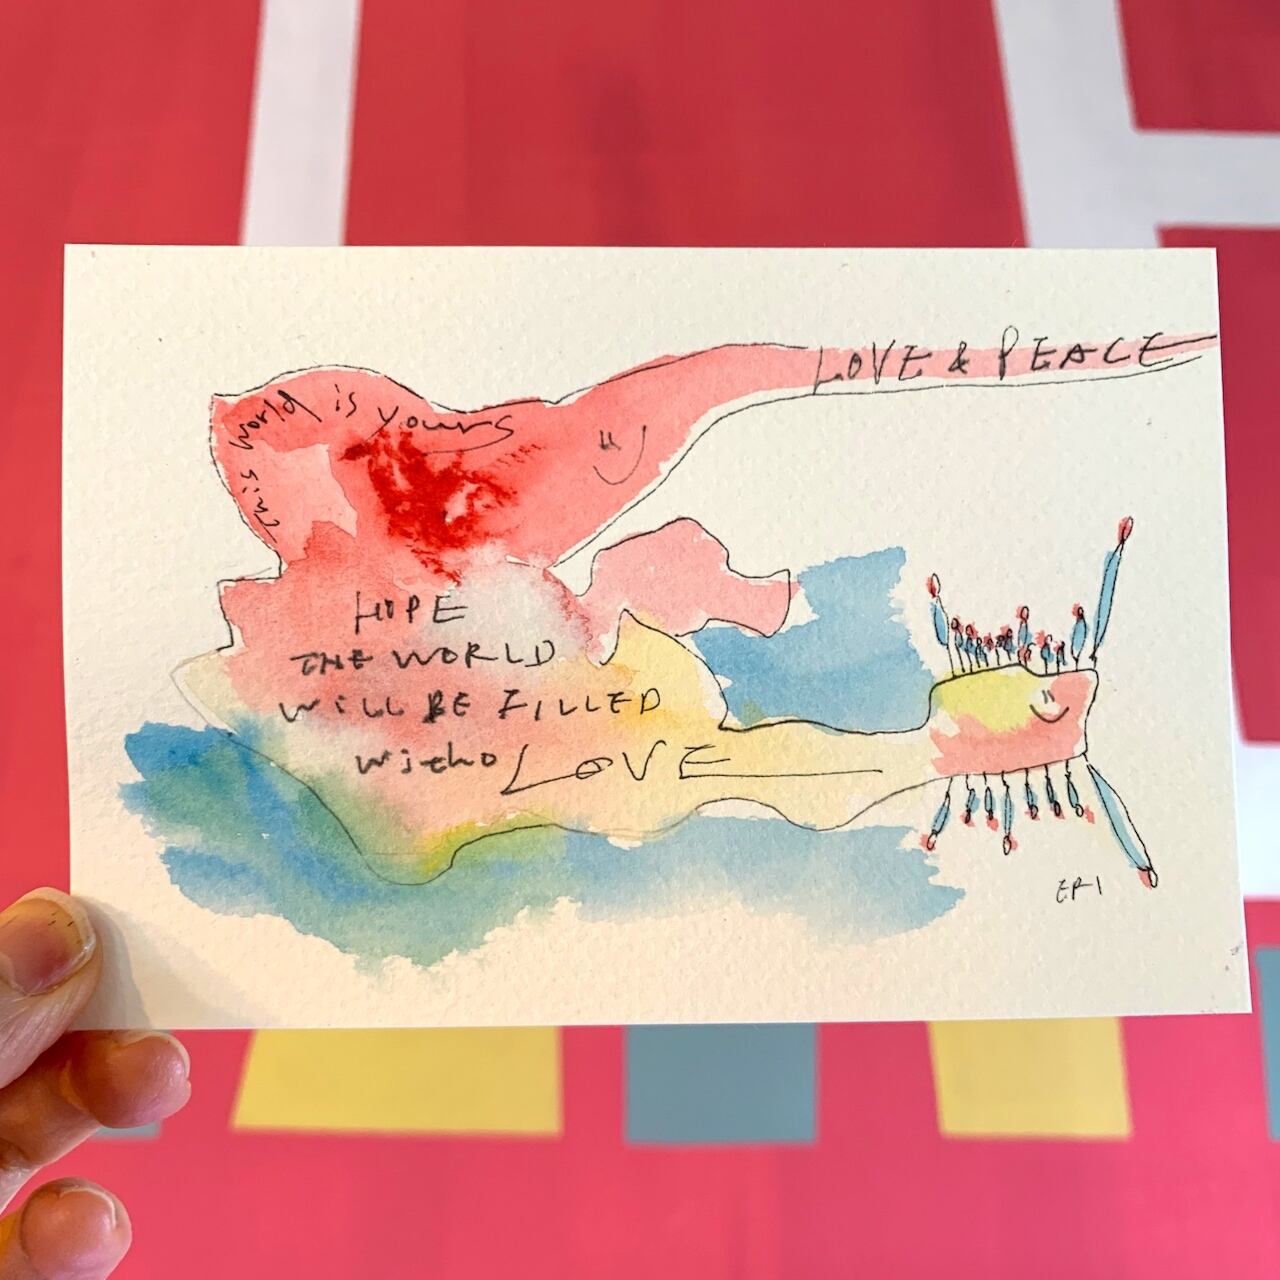 LOVE & PEACE
This world is yours
HOPE
THE WORLD
WILL BE FILLED
with LOVE
ERI